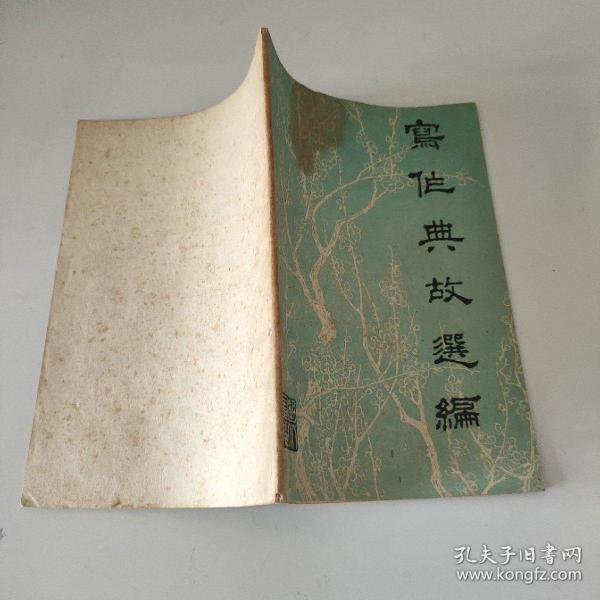 寫作典故選編
孔夫子旧书网
www.kongfz.com